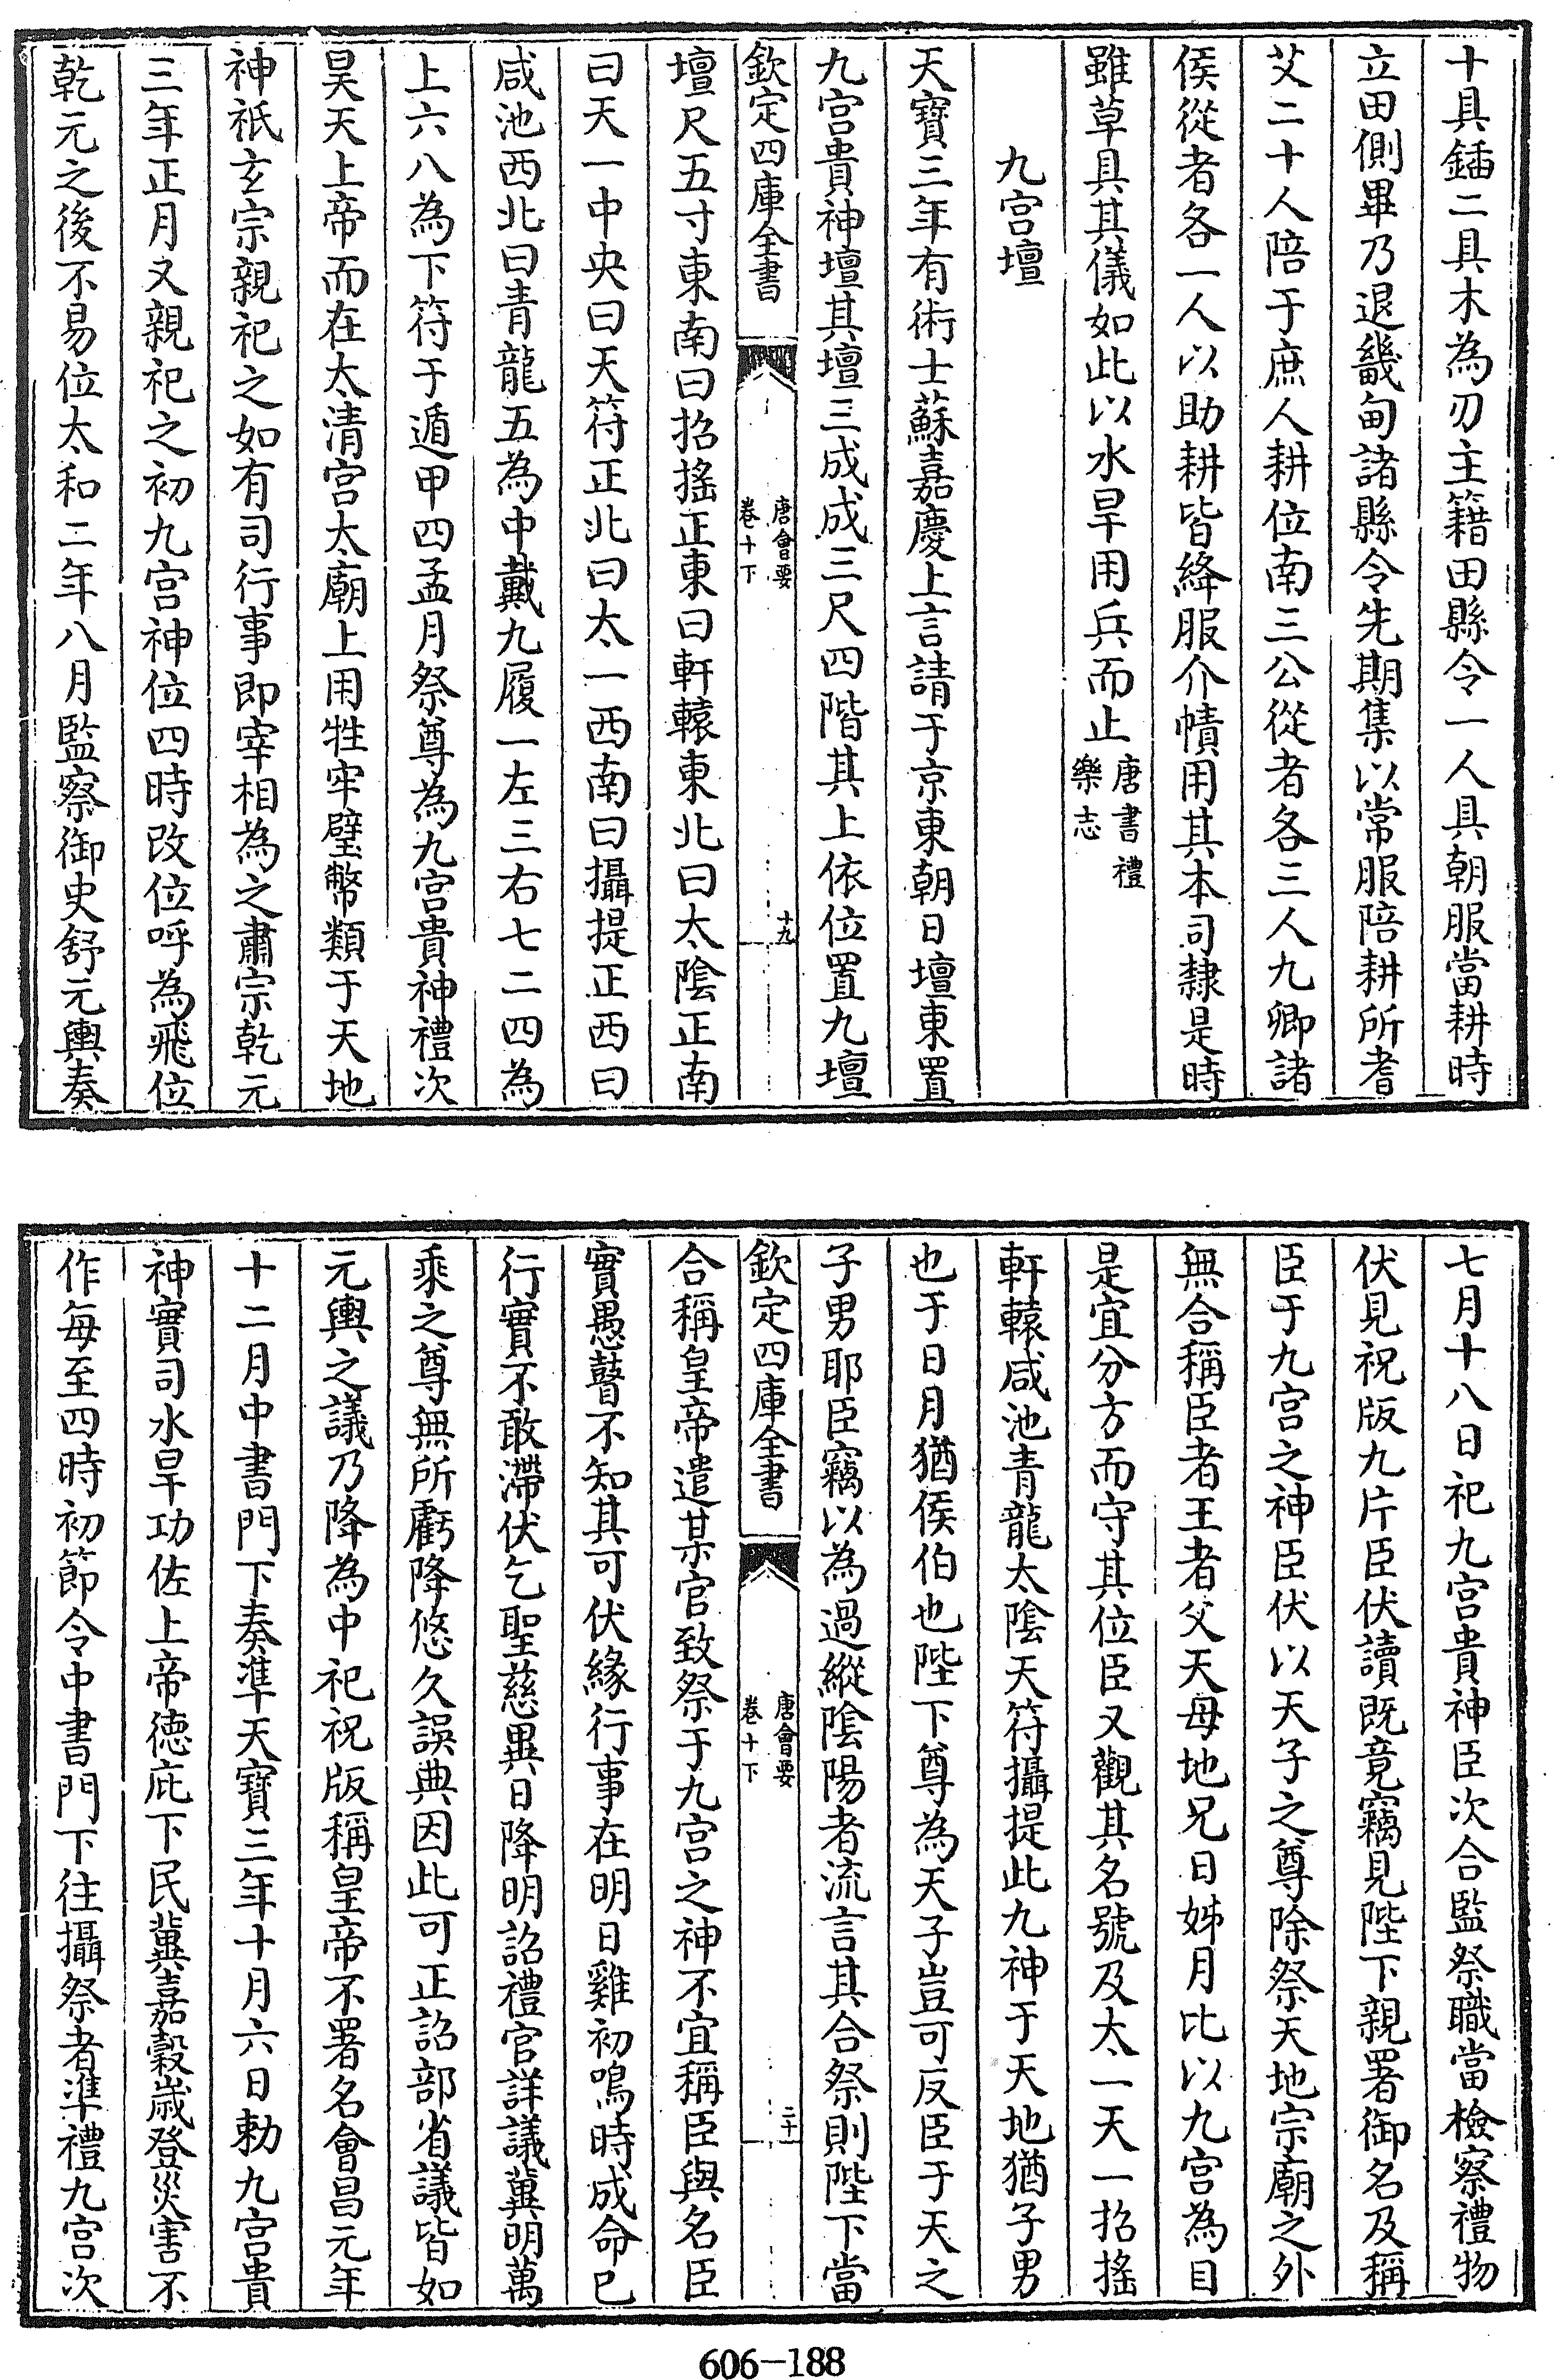 十具鍤二具木為刃主籍田縣令一人具朝服當耕時
立田側畢乃退畿甸諸縣令先期集以常服陪耕所耆
艾二十人陪于庶人耕位南三公從者各三人九卿諸
侯從者各一人以助耕皆絳服介幘用其本司隸是時
雖草具其儀如此以水旱用兵而止唐書禮樂志
九宫壇
天寶三年有術士蘇嘉慶上言請于京東朝日壇東置
九宫貴神壇其壇三成成三尺四階其上依位置九壇
欽定四庫全書
唐會要
卷十下
十九
壇尺五寸東南曰招搖正東曰軒轅東北曰太陰正南
曰天一中央曰天符正北曰太一西南曰攝提正西曰
咸池西北曰青龍五為中戴九履一左三右七二四為
上六八為下符于遁甲四孟月祭尊為九宫貴神禮次
昊天上帝而在太清宫太廟上用牲牢璧幣類于天地
神祇玄宗親祀之如有司行事即宰相為之肅宗乾元
三年正月又親祀之初九宫神位四時改位呼為飛位
乾元之後不易位太和二年八月監察御史舒元輿奏
七月十八日祀九宫貴神臣次合監祭職當檢察禮物
伏見祝版九片臣伏讀既竟竊見陛下親署御名及稱
臣于九宫之神臣伏以天子之尊除祭天地宗廟之外
無合稱臣者王者父天母地兄日姊月比以九宫為目
是宜分方而守其位臣又觀其名號及太一天一招搖
軒轅咸池青龍太陰天符攝提此九神于天地猶子男
也于日月猶侯伯也陛下尊為天子豈可反臣于天之
子男耶臣竊以為過縱陰陽者流言其合祭則陛下當
欽定四庫全書
唐會要
卷十下
二十
合稱皇帝遣某官致祭于九宫之神不宜稱臣與名臣
實愚瞽不知其可伏緣行事在明日雞初鳴時成命已
行實不敢滯伏乞聖慈異日降明詔禮官詳議冀明萬
乘之尊無所虧降悠久誤典因此可正詔部省議皆如
元輿之議乃降為中祀祝版稱皇帝不署名會昌元年
十二月中書門下奏準天寶三年十月六日勅九宫貴
神實司水旱功佐上帝德庇下民冀嘉穀歲登災害不
作每至四時初節令中書門下往攝祭者準禮九宫次
606-188